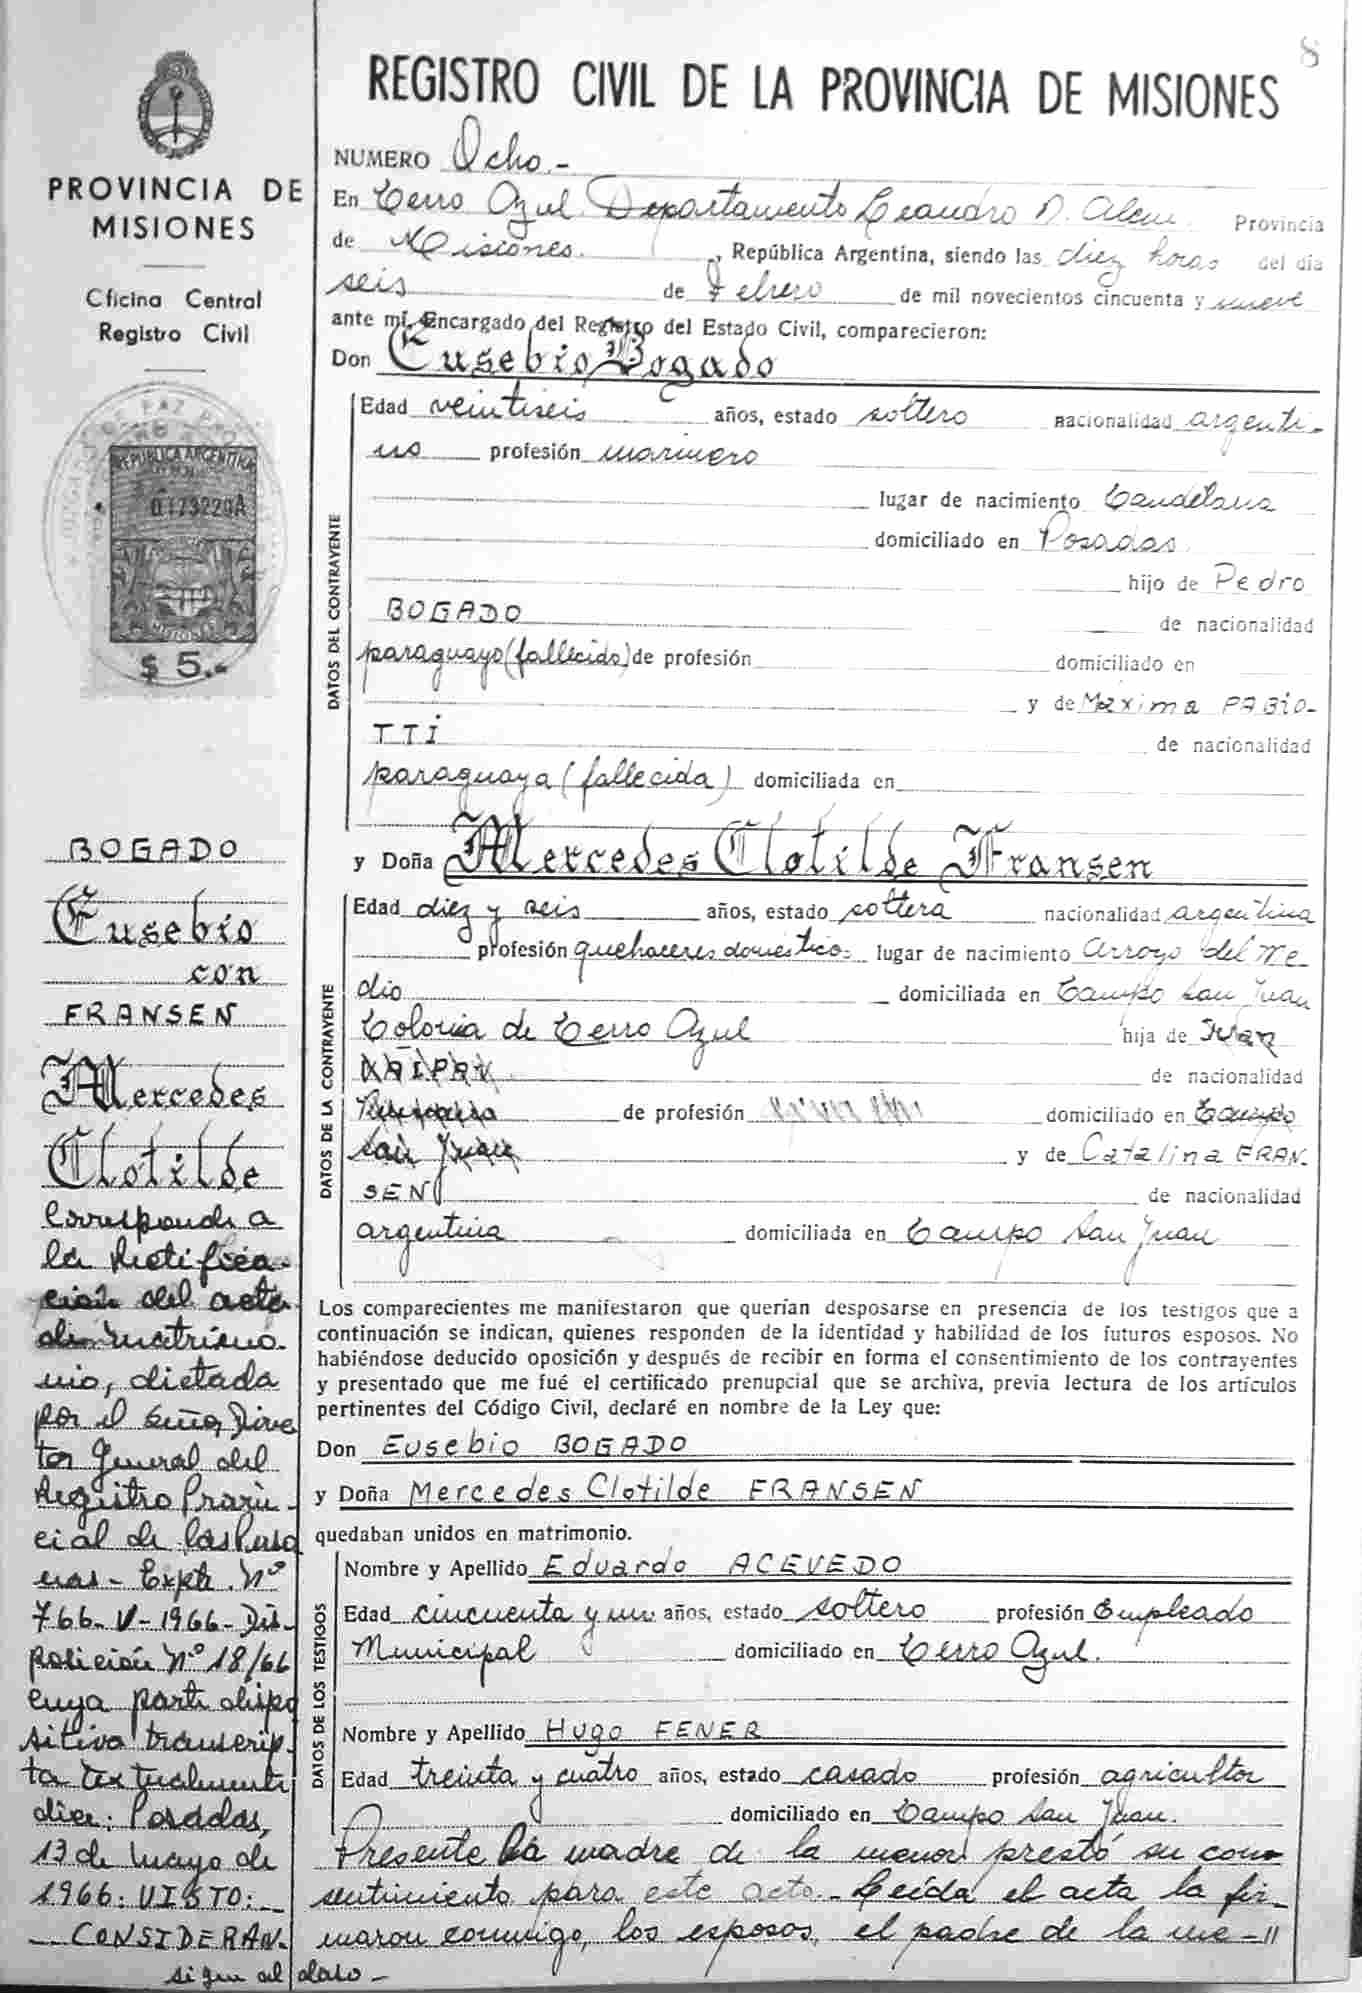 8
REGISTRO CIVIL DE LA PROVINCIA DE MISIONES
PROVINCIA DE
MISIONES
Oficina Central
Registro Civil
REPUBLICA ARGENTINA
0173220A
MISIONES
$ 5.-
BOGADO
Eusebio
con
FRANSEN
Mercedes
Clotilde
Corresponde a
la Rectifica-
ción del acta
de matrimo-
nio, dictada
por el Señor Direc
tor General del
Registro Provin-
cial de las Perso
nas - Expte. Nº
766-V-1966- Dis-
posición Nº 18/66
cuya parte dispo
sitiva transcrip-
ta textualmente
dice: Posadas,
13 de Mayo de
1966: VISTO:
CONSIDERAN-
sigue al dorso -
NUMERO Ocho.-
En Cerro Azul Departamento Leandro N. Alem Provincia
de Misiones, República Argentina, siendo las diez horas del día
seis de Febrero de mil novecientos cincuenta y nueve
ante mí, Encargado del Registro del Estado Civil, comparecieron:
Don Eusebio Bogado
DATOS DEL CONTRAYENTE
Edad veintiseis años, estado soltero nacionalidad argenti-
no profesión marinero
lugar de nacimiento Candelaria
domiciliado en Posadas
hijo de Pedro
BOGADO de nacionalidad
paraguayo (fallecido) de profesión domiciliado en
y de Maxima PABIO-
TTI de nacionalidad
paraguaya (fallecida) domiciliada en
y Doña Mercedes Clotilde Fransen
DATOS DE LA CONTRAYENTE
Edad diez y seis años, estado soltera nacionalidad argentina
profesión quehaceres domésticos lugar de nacimiento Arroyo del Me-
dio domiciliada en Campo San Juan
Colonia de Cerro Azul hija de Juan
de nacionalidad
de profesión domiciliado en Campo
San Juan y de Catalina FRAN-
SEN de nacionalidad
argentina domiciliada en Campo San Juan
Los comparecientes me manifestaron que querían desposarse en presencia de los testigos que a
continuación se indican, quienes responden de la identidad y habilidad de los futuros esposos. No
habiéndose deducido oposición y después de recibir en forma el consentimiento de los contrayentes
y presentado que me fué el certificado prenupcial que se archiva, previa lectura de los artículos
pertinentes del Código Civil, declaré en nombre de la Ley que:
Don Eusebio BOGADO
y Doña Mercedes Clotilde FRANSEN
quedaban unidos en matrimonio.
DATOS DE LOS TESTIGOS
Nombre y Apellido Eduardo ACEVEDO
Edad cincuenta y un años, estado soltero profesión Empleado
Municipal domiciliado en Cerro Azul.
Nombre y Apellido Hugo FENER
Edad treinta y cuatro años, estado casado profesión agricultor
domiciliado en Campo San Juan.
Presente la madre de la menor prestó su con-
sentimiento para este acto.- Leída el acta la fir-
maron conmigo, los esposos, el padre de la me-//